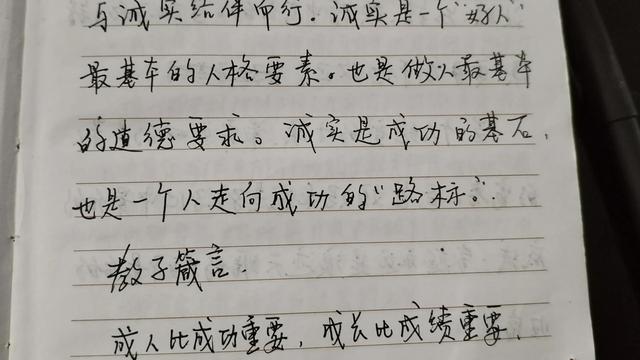 与诚实结伴而行.诚实是一个"好人"
最基本的人格要素。也是做人最基本
的道德要求。诚实是成功的基石,
也是一个人走向成功的"路标"。
教子箴言.
成人比成功重要,成长比成绩重要,